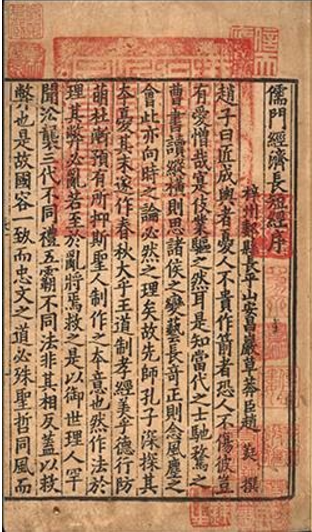 儒門經濟長短經序
梓州郪縣長平山安昌巖草莽臣趙 蕤 撰
趙子曰匠成輿者憂人不貴作箭者恐人不傷彼豈
有愛憎哉寔伎業驅之然耳是知當代之士馳騖之
曹書讀縱橫則思諸侯之變藝長竒正則念風塵之
會此亦向時之論必然之理矣故先師孔子深探其
夲憂其末遂作春秋大乎王道制孝經美乎德行防
萌杜漸預有所抑斯聖人制作之夲意也然作法於
理其弊必亂若至於亂將焉救之是以御世理人罕
聞沿襲三代不同禮五霸不同法非其相反蓋以救
弊也是故國容一致而忠文之道必殊聖哲同風而